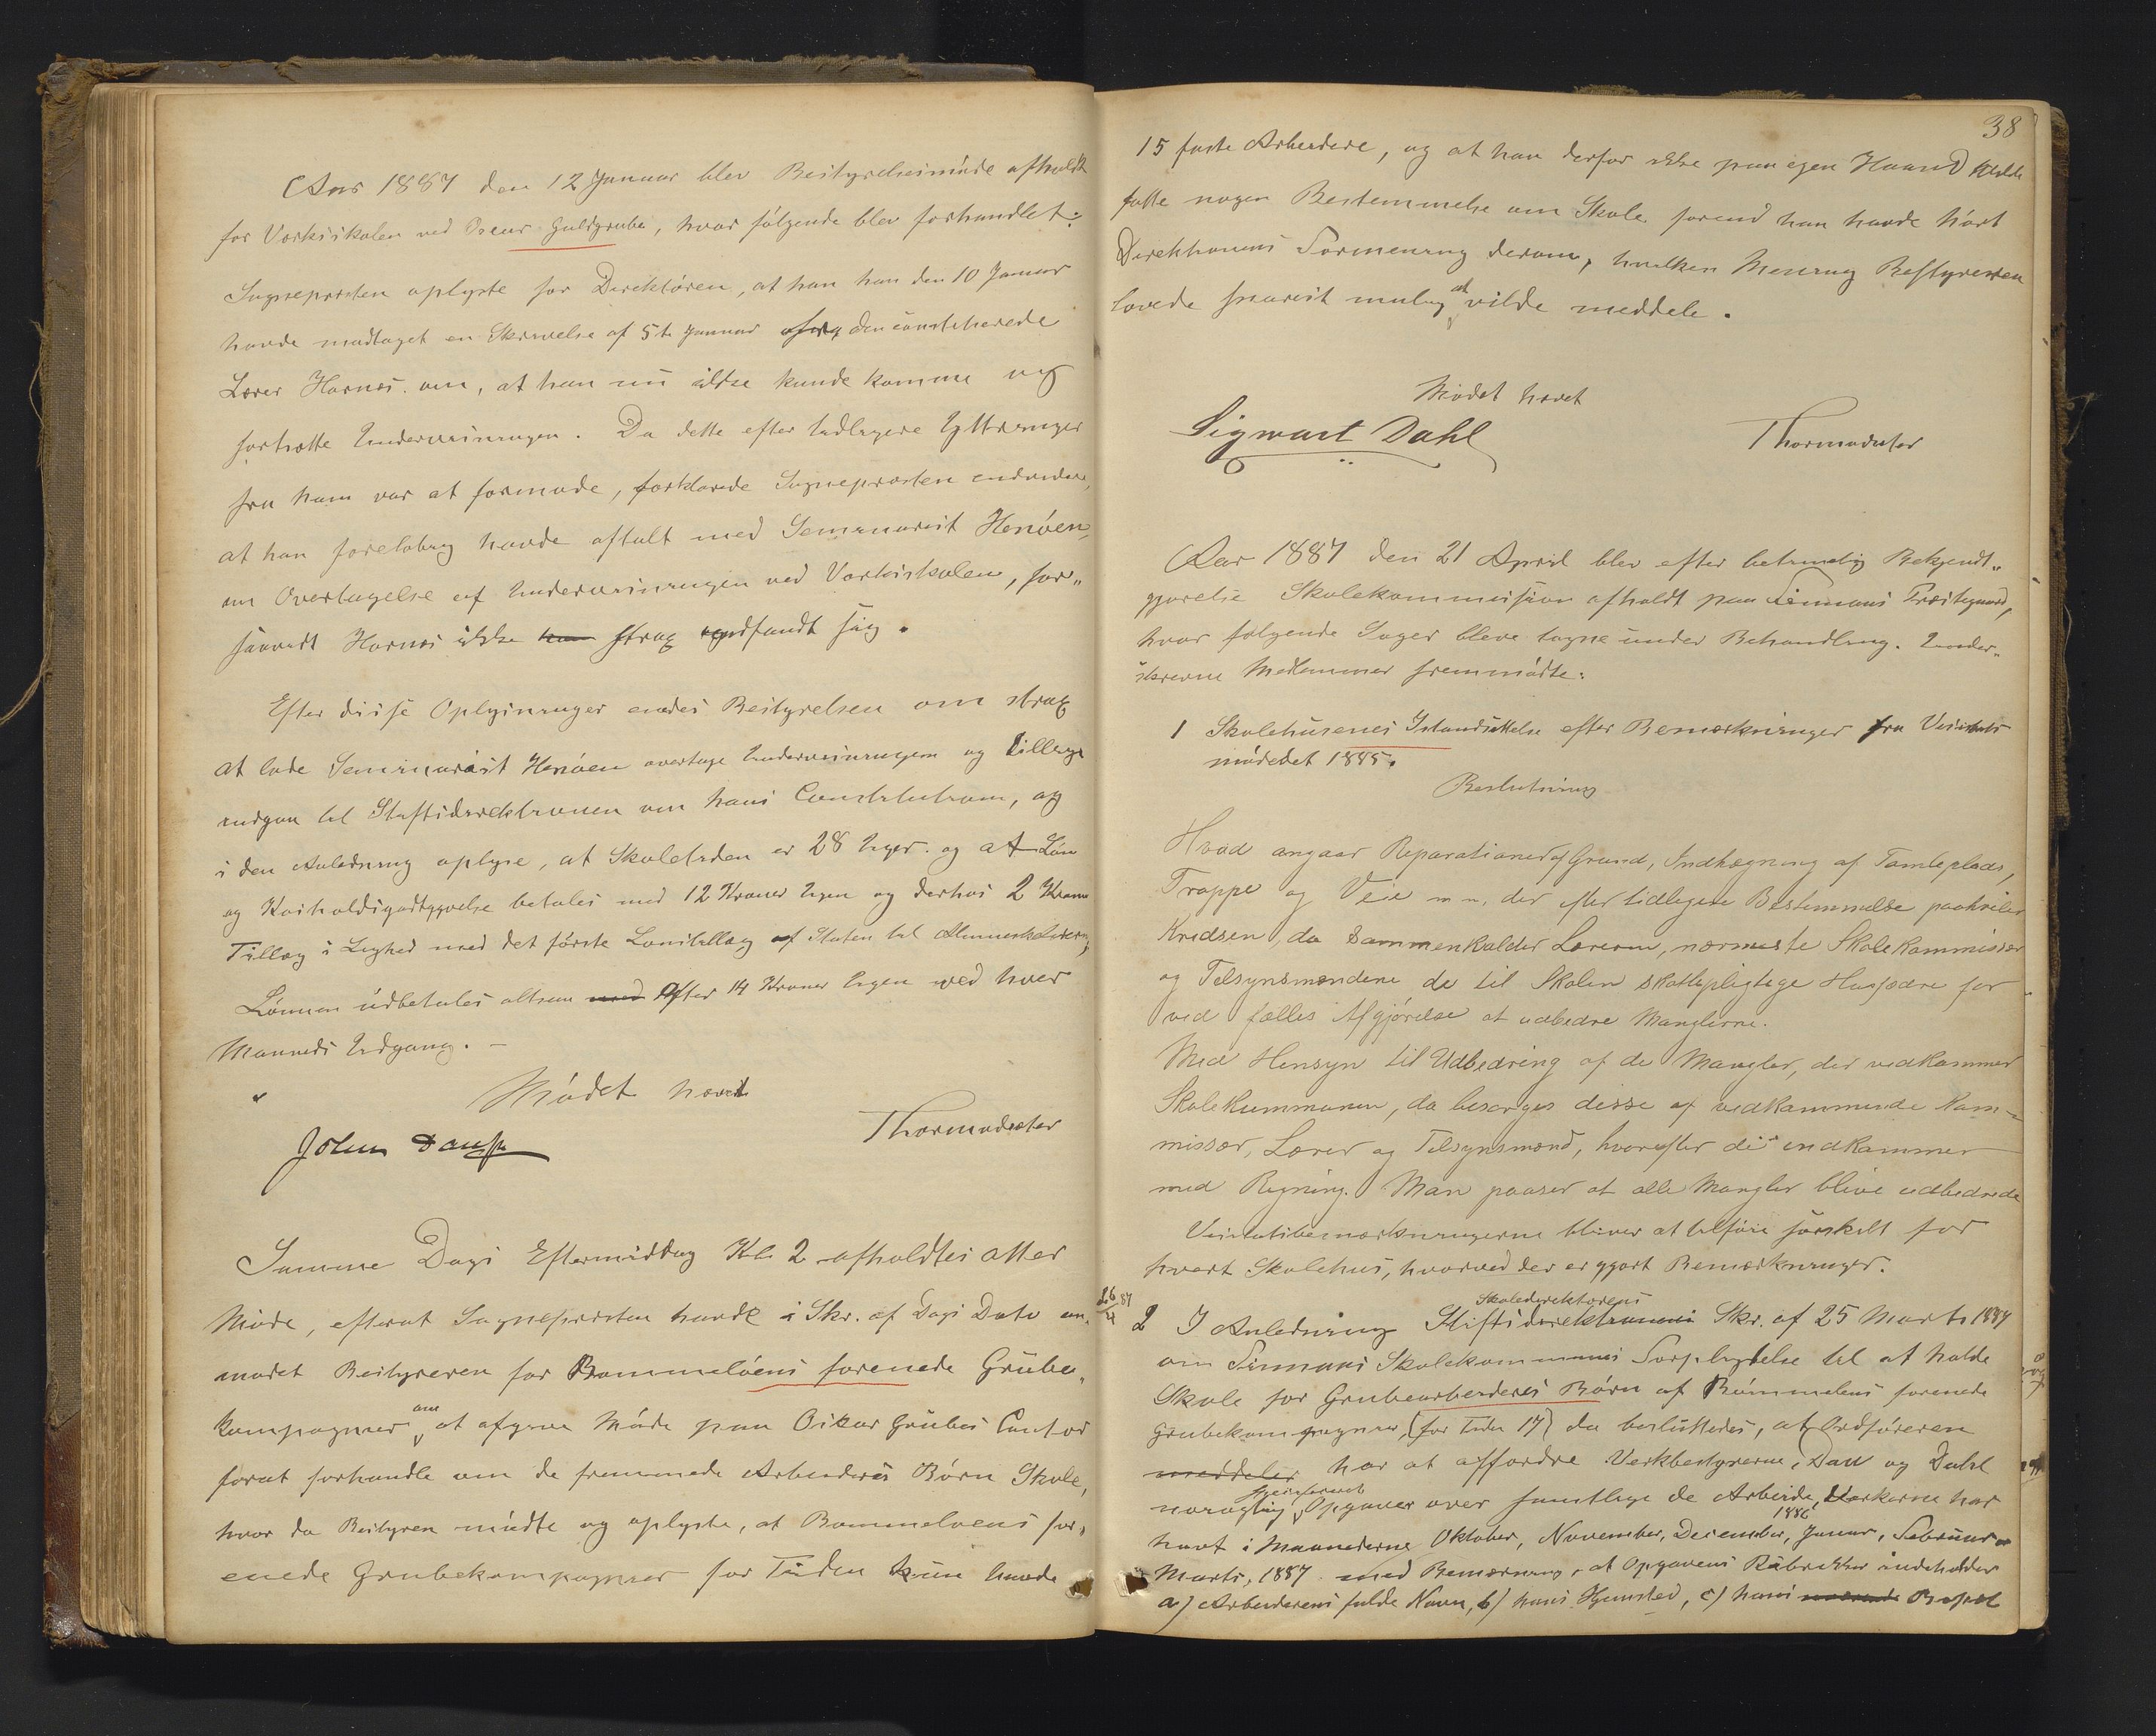 Aar 1887 den 12 Januar blev Bestyrelsesmöde afholdt
for Værksskolen ved Oscar Guldgrube, hvor fölgende blev forhandlet:
Sognepresten oplyste for Direktören, at han han den 10 Januar
havde modtaget en Skrivelse af 5te Januar fra den constituerede
Lærer Harnæs om, at han nu ikke kunde komme og
fortsætte Undervisningen. Da dette efter tidligere Yttringer
fra ham var at formode, forklarede Sognepresten endvidere,
at han foreløbig havde aftalt med Seminarist Henöen,
om Overtagelse af Undervisningen ved Værksskolen, for„
saavidt Harnæs ikke strax indfandt sig.
Efter disse Oplysninger enedes Bestyrelsen om strax
at lade Seminarist Henöen overtage Undervisningen og tillige
indgaa til Stiftsdirektionen om hans Constitution, og
i den Anledning oplyse, at Skoletiden er 28 Uger og at Løn
og Kostholdsgodtgjørelse betales med 12 Kroner Ugen og derhos 2 Kroner
Tillæg i Lighed med det første Lønstillæg af Staten til Almueskolelærere,
Lönnen udbetales altsaa med efter 14 Kroner Ugen ved hver
Maaneds Udgang. –
Mödet hævet
Thormodsæter
Johm Dauff
Samme Dags Eftermiddag Kl. 2 afholdtes atter
Möde, efterat Sognepresten havde i Skr. af Dags Dato an„
modet Bestyreren for Bommelöens forenede Grube„
kompagnier om at afgive Möde paa Oscar Grubes Contor
forat forhandle om de fremmede Arbeideres Börn Skole,
hvor da Bestyren mödte og oplyste, at Bommelöens for„
enede Grubekompagnier for Tiden kun havde
38
15 faste Arbeidere, og at han derfor ikke paa egen Haand vilde
fatte nogen Bestemmelse om Skole forend han havde hört
Direktionens Formening derom, hvilken Mening Bestyreren
lovede snarest mulig at vilde meddele.
Mödet hævet
Sigwart Dahl
Thormodsæter
Aar 1887 den 21 April blev efter betimelig Bekjendt„
gjørelse Skolekommission afholdt paa Finnaas Prestegaard,
hvor følgende Sager bleve tagne under Behandling. Under„
skrevne Medlemmer fremmödte:
1 Skolehusenes Istandsættelse efter Bemærkninger fra Visitats
mödedet 1885.
Beslutning
Hvad angaar Reparationer af Grund, Indhegning af Tomteplads,
Trappe og Veie m m, der efter tidligere Bestemmelse paahviler
Kredsen, da Sammenkalder Læreren, nærmeste Skolekommissær
og Tilsynsmændene de til Skolen skattepligtige Husfædre for
ved fælles Afgjörelse at udbedre Manglerne.
Med Hensyn til Udbedring af de Mangler, der vedkommer
Skolekummunen, da besørges disse af vedkommende Kom„
missær, Lærer og Tilsynsmænd, hvorefter de indkommer
med Regning. Man paaser at alle Mangler blive udbedrede
Visitatsbemærkningerne bliver at tilføie særskilt for
hvert Skolehus, hvorved der er gjort Bemærkninger.
26/4 87
2 I Anledning Stiftsdirektionens Skoledirektorens Skr. af 25 Marts 1887
om Finnaas Skolekommunes Forpligtelse til at holde
Skole for Grubearbeideres Börn af Bömmelens forenede
Grubekompagnier, (for Tiden 17) da besluttedes, at Ordföreren
meddeler har at affordre Verkbestyrerne, Dau og Dahl
nøiagtig Opgaver over samtlige de Arbeide, Verkerne har
havt i Maanederne Oktober, November, December, 1886 Januar, Februar
Marts, 1887 med Bemærkning, at Opgavens Rubrikker indeholder
a) Arbeiderens fulde Navn, b) hans Hjemsted, c) hans